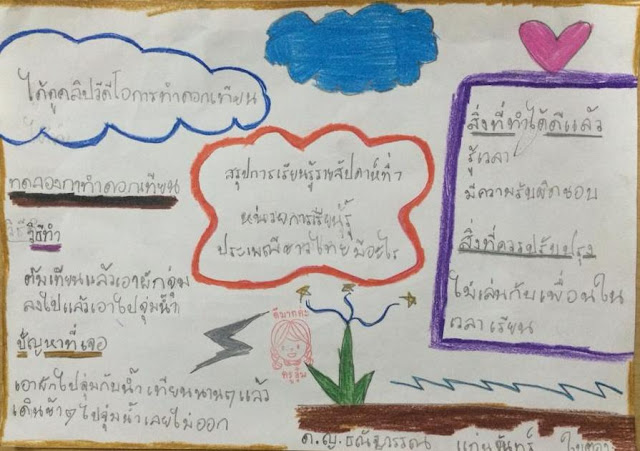 ได้ดูคลิปวีดีโอการทำดอกเทียน
ทดลองทำดอกเทียน
วิธีทำ
ต้มเทียนแล้วเอาผักจุ่ม
ลงไปแล้วเอาไปจุ่มน้ำ
ปัญหาที่เจอ
เอาผักไปจุ่มกับน้ำเทียนนานๆแล้ว
เดินช้าๆไปจุ่มน้ำเลยไม่ออก
สรุปการเรียนรู้รายสัปดาห์ที่7
หน่วยการเรียนรู้
ประเพณีชาวไทยมีอะไร
ดีมากค่ะ
ครู
สิ่งที่ทำได้ดีแล้ว
รู้เวลา
มีความรับผิดชอบ
สิ่งที่ควรปรับปรุง
ไม่เล่นกับเพื่อนใน
เวลาเรียน
ด.ญ.